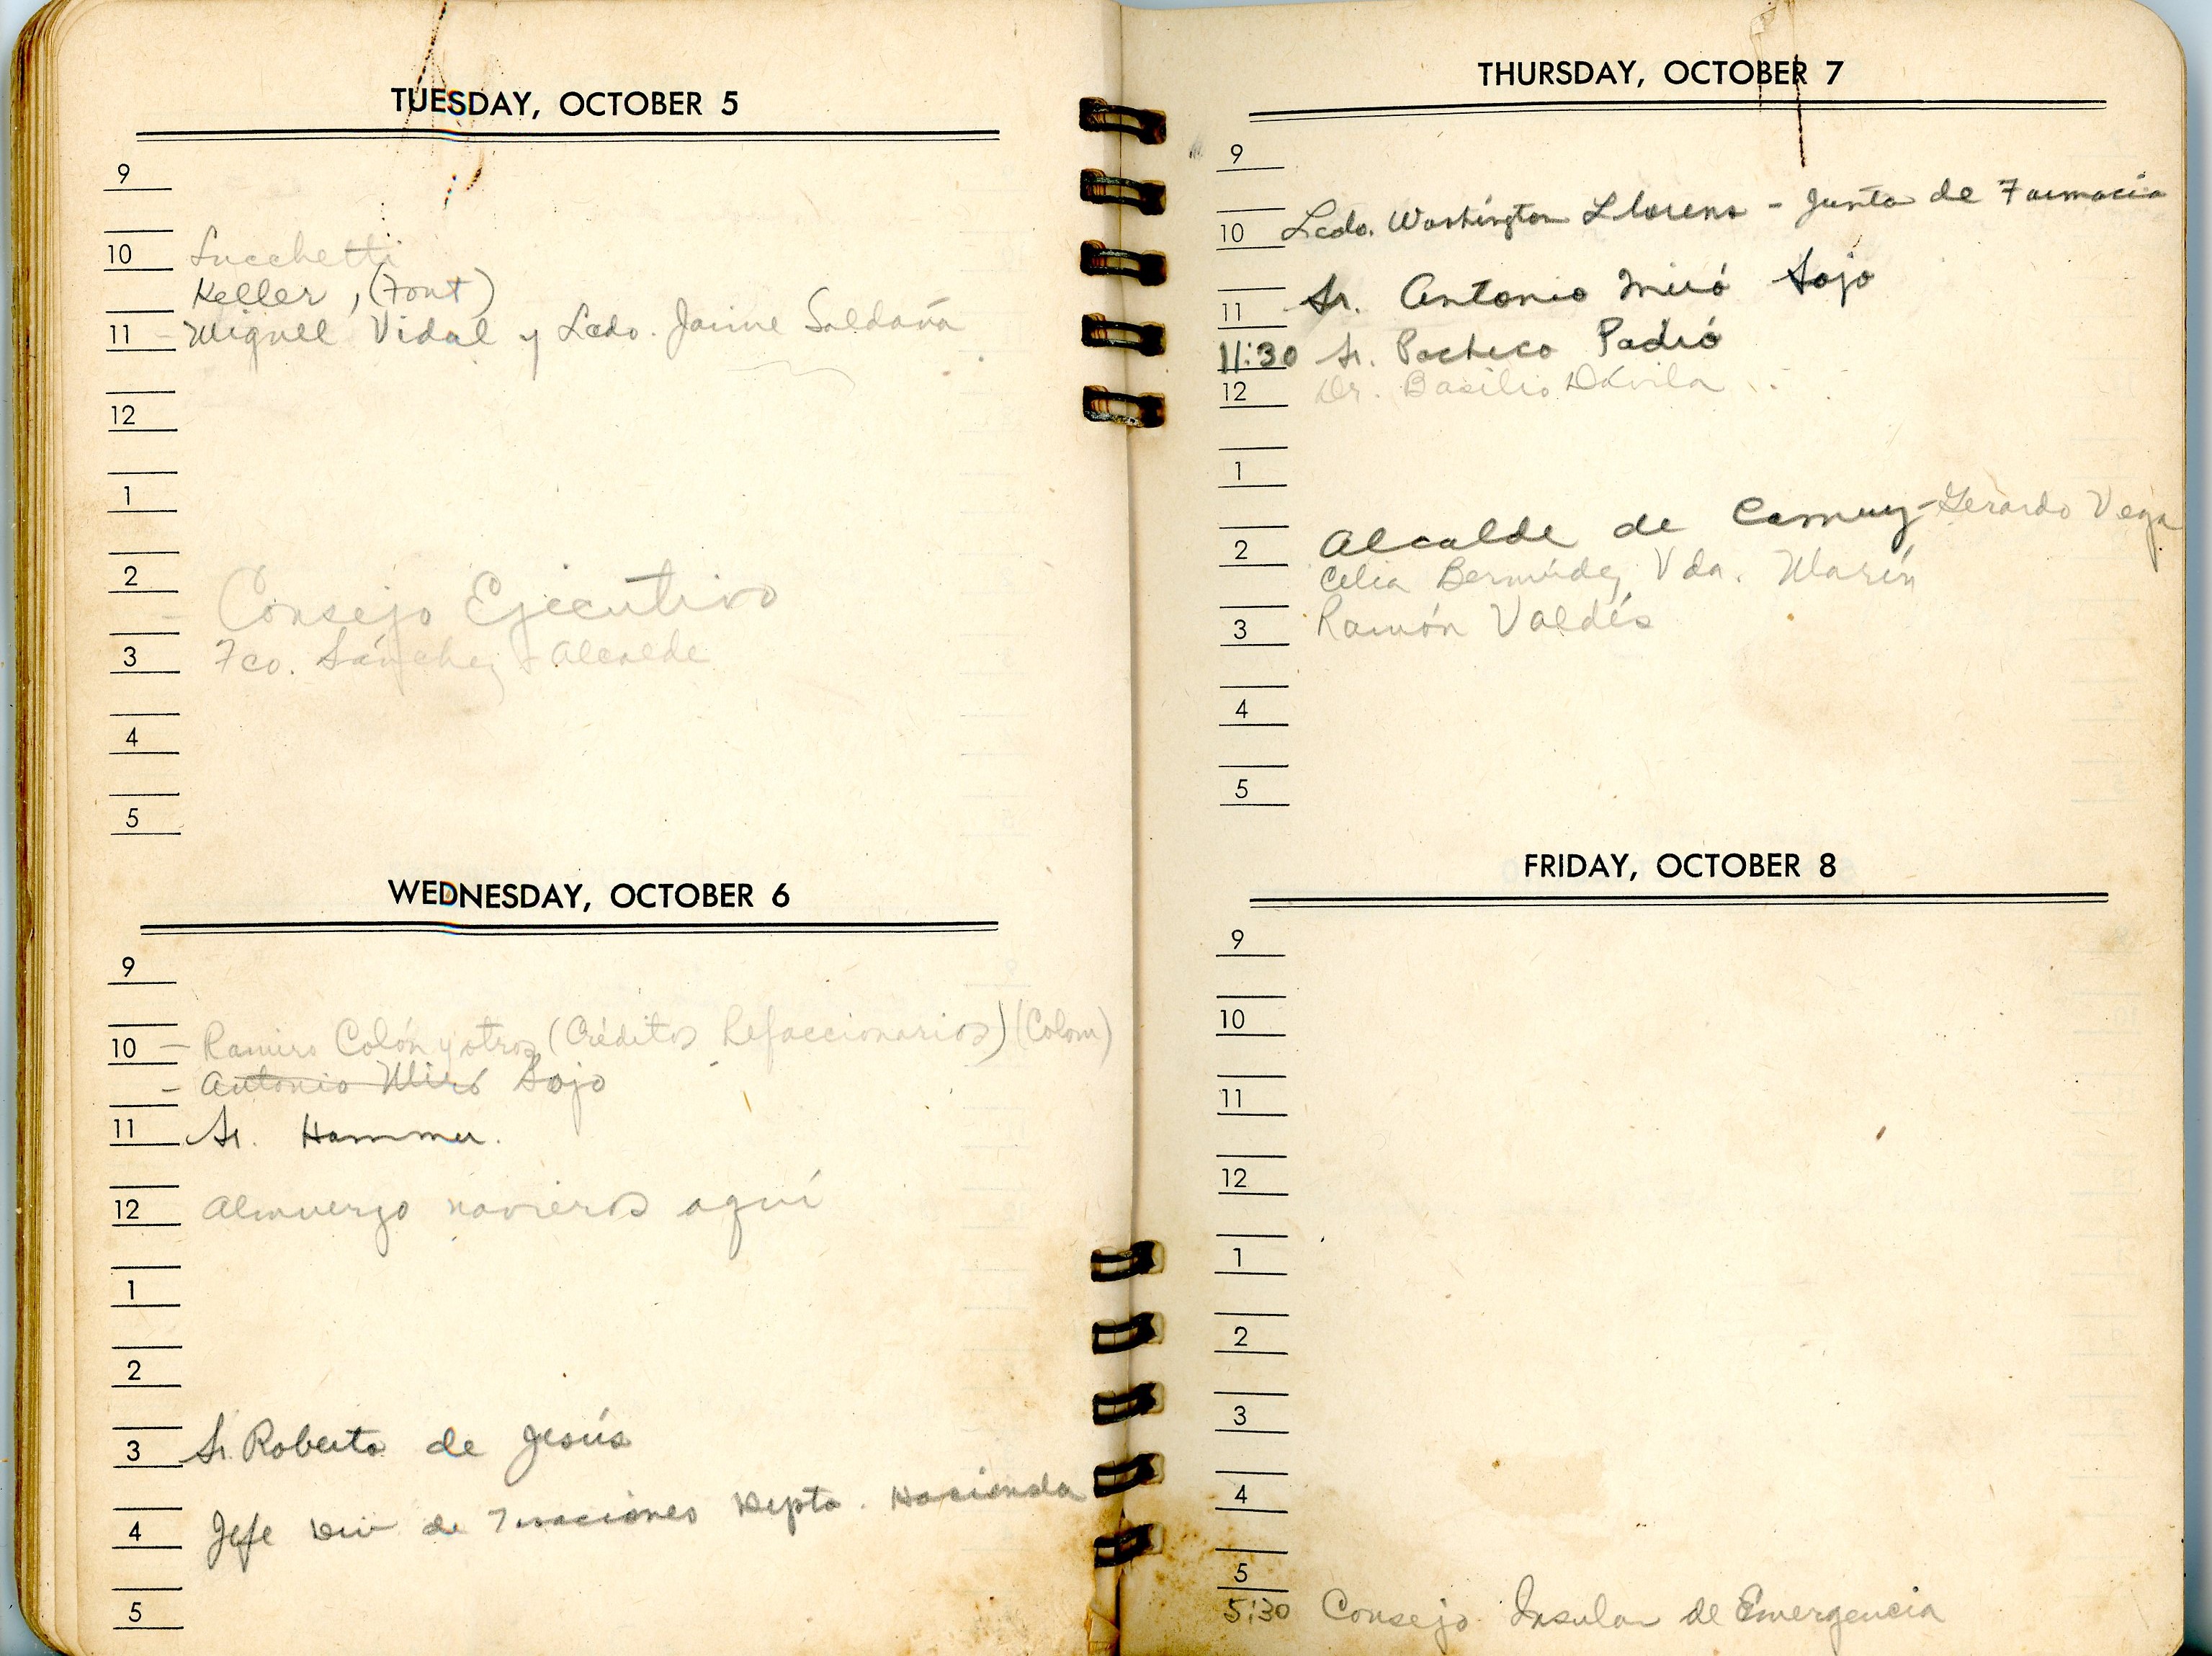 TUESDAY, OCTOBER 5
9
10 Lucchetti
Keller, (Font)
11 - Miguel Vidal y Lcdo. Jaime Saldaña
12
1
2
Consejo Ejecutivo
3 Fco. Sánchez - Alcalde
4
5
WEDNESDAY, OCTOBER 6
9
10 - Ramiro Colón y otros (Créditos Refaccionarios) (Colom)
- Antonio Miró Sojo
11 Sr. Hammer.
12 Almuerzo navieros aquí
1
2
3 Sr. Roberto de Jesús
4 Jefe Div de Tasaciones Depto. Hacienda
5
THURSDAY, OCTOBER 7
9
10 Lcdo. Washington Llorens - Junta de Farmacia
11 Sr. Antonio Miró Sojo
11:30 Sr. Pacheco Padró
12 Dr. Basilio Dávila
1
2 Alcalde de Camuy - Gerardo Vega
Celia Bermúdez Vda. Marín
3 Ramón Valdés
4
5
FRIDAY, OCTOBER 8
9
10
11
12
1
2
3
4
5
5:30 Consejo Insular de Emergencia